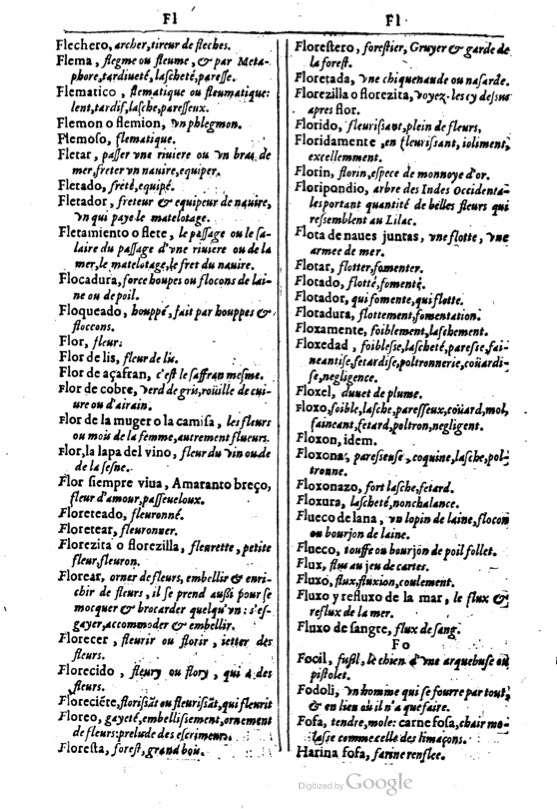 Fl
Flechero, archer, tireur de fleches.
Flema, flegme ou fleume, & par Meta-
phore, tardiueté, laſcheté, pareſſe.
Flematico, flematique ou fleumatique:
lent, tardif, laſche, pareſſeux.
Flemon o flemion, vn phlegmon.
Flemoſo, flematique.
Fletar, paſſer vne riuiere ou vn bras de
mer, freter vn nauire, equiper.
Fletado, freté, equipé.
Fletador, freteur & equipeur de nauire,
vn qui paye le matelotage.
Fletamiento o flete, le paſſage ou le ſa-
laire du paſſage d'vne riuiere ou de la
mer, le matelotage, le fret du nauire.
Flocadura, force houpes ou flocons de lai-
ne ou de poil.
Floqueado, houppé, fait par houppes &
floccons.
Flor, fleur.
Flor de lis, fleur de lis.
Flor de açafran, c'eſt le ſaffran meſme.
Flor de cobre, verd de gris, roüille de cui-
ure ou d'airain.
Flor de la muger o la camiſa, les fleurs
ou mois de la femme, autrement flueurs.
Flor, la lapa del vino, fleur du vin ou de
de la ſeſne.
Flor ſiempre viua, Amaranto breço,
fleur d'amour, paſſeueloux.
Floreteado, fleuronné.
Floretear, fleuronner.
Florezita o florezilla, fleurette, petite
fleur, fleuron.
Florear, orner de fleurs, embellir & enri-
chir de fleurs, il ſe prend auſſi pour ſe
mocquer & brocarder quelqu'vn: s'eſ-
gayer, accommoder & embellir.
Florecer, fleurir ou florir, ietter des
fleurs.
Florecido, fleury ou flory, qui a des
fleurs.
Floreciéte, floriſsāt ou fleuriſsāt, qui fleurit
Floreo, gayeté, embelliſſement, ornement
de fleurs: prelude des eſcrimeurs.
Floreſta, foreſt, grand bois.
Fl
Floreſtero, foreſtier, Gruyer & garde de
la foreſt.
Floretada, vne chiquenaude ou naſarde.
Florezilla o florezita, voyez-les cy deſſus
apres flor.
Florido, fleuriſſant, plein de fleurs,
Floridamente, en fleuriſſant, ioliment,
excellemment.
Florin, florin, eſpece de monnoye d'or.
Floripondio, arbre des Indes Occidenta-
les portant quantité de belles fleurs qui
reſſemblent au Lilac.
Flota de naues juntas, vne flotte, vne
armee de mer.
Flotar, flotter, fomenter.
Flotado, flotté, fomenté.
Flotador, qui fomente, qui flotte.
Flotadura, flottement, fomentation.
Floxamente, foiblement, laſchement.
Floxedad, foibleſſe, laſcheté, pareſſe, fai-
neantiſe, fetardiſe, poltronnerie, coüardi-
ſe, negligence.
Floxel, duuet de plume.
Floxo, foible, laſche, pareſſeux, coüard, mol,
faineant, fetard, poltron, negligent.
Floxon, idem.
Floxona, pareſſeuſe, coquine, laſche, pol-
tronne.
Floxonazo, fort laſche, fetard.
Floxura, laſcheté, nonchalance.
Flueco de lana, vn lopin de laine, flocon
ou bourjon de laine.
Flueco, touffe ou bourjon de poil follet.
Flux, flus au jeu de cartes.
Fluxo, flux, fluxion, coulement.
Fluxo y refluxo de la mar, le flux &
reflux de la mer.
Fluxo de ſangre, flux de ſang.
Fo
Focil, fuſil, le chien d'vne arquebuſe ou
piſtolet.
Fodoli, vn homme qui ſe fourre par tout,
& en lieu où il n'a que faire.
Fofa, tendre, mole: carne fofa, chair mo-
laſſe comme celle des limaçons.
Harina fofa, farine renflee.
Digitized by Google